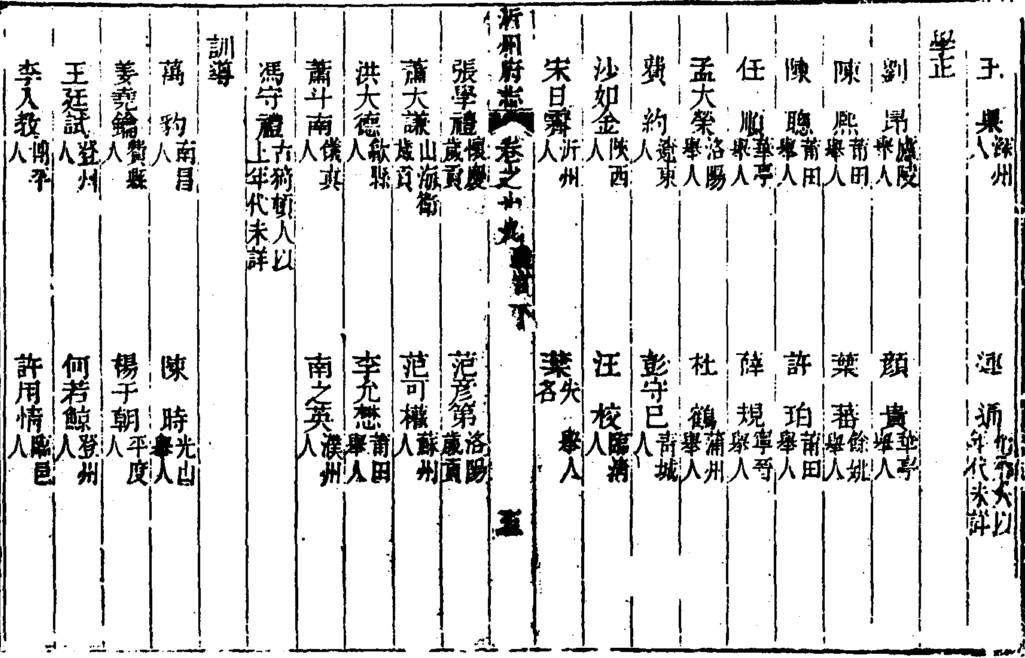 王 㮚 深州人 連 逋 以上年代未詳
學正
劉 昂 廬陵舉人 顏 貴 華亭舉人
陳 熙 莆田舉人 葉 蕃 餘姚舉人
陳 聰 莆田舉人 許 珀 莆田舉人
任 順 華亭舉人 薛 規 寧晉舉人
孟大榮 洛陽舉人 杜 鶴 蒲州舉人
費 約 遼東人 彭守巳 青城人
沙如金 陝西人 汪 校 臨清人
宋日霽 沂州人 葉 失名 舉人
沂州府志 卷之十九 職官下 五
張學禮 懷慶歲貢 范彥第 洛陽歲貢
蕭大謙 山海衛歲貢 范可權 蘇州人
洪大德 歙縣人 李允懋 莆田舉人
蕭斗南 儀真人 南之英 濮州人
馮守禮 古猗頓人以上年代未詳
訓導
萬 豹 南昌人 陳 時 光山舉人
姜堯鑰 費縣人 楊于朝 平度人
王廷試 登州人 何若鯨 登州人
李入教 博平人 許用情 臨邑人